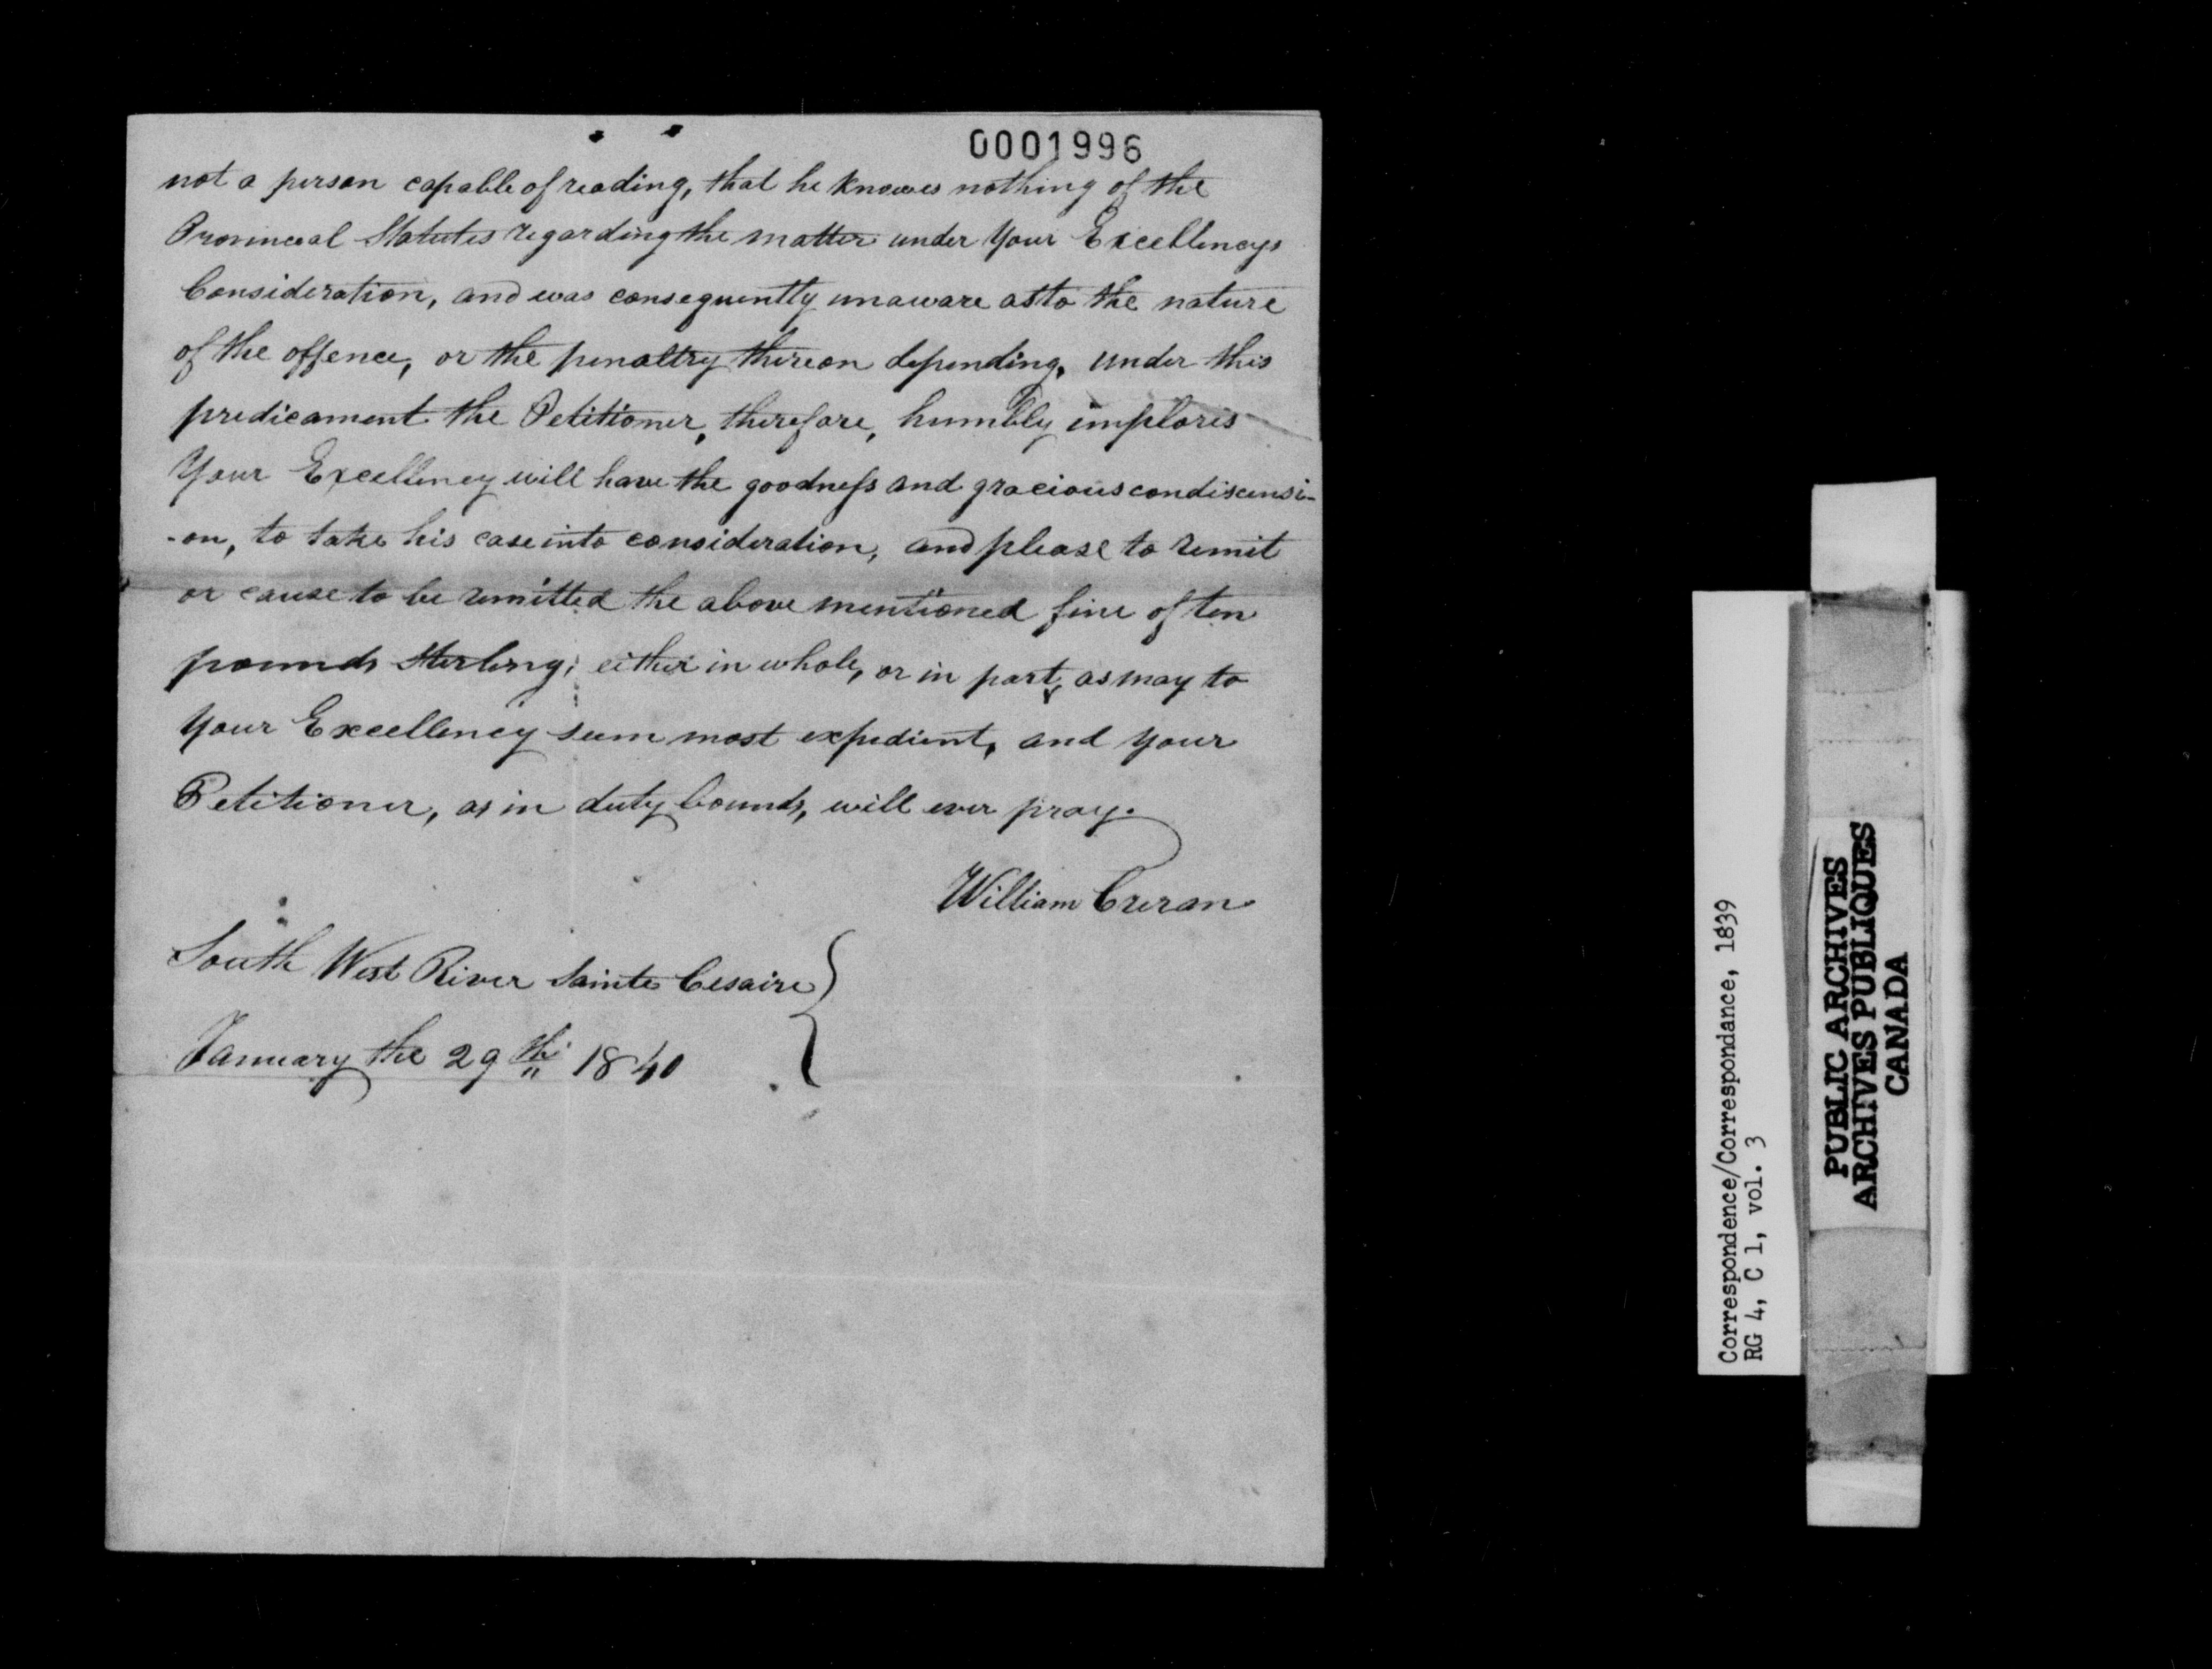 0001996
not a person capable of reading, that he knowes nothing of the
Provincial Statutes regarding the matter under Your Excellencys
Consideration, and was consequently unaware as to the nature
of the offence, or the penaltry thereon depending, under this
predicament the Petitioner, therefore, humbly implores
Your Excellency will have the goodness and gracious condiscensi-
-on, to take his case into consideration, and please to remit
or cause to be remitted the above mentioned fine of ten
pounds sterling; either in whole, or in part, as may to
Your Excellency seem most expedient, and your
Petitioner, as in duty bounds, will ever pray.
William Creran
South West River Sainte Cesaire
January the 29th 1840
Correspondence/Correspondance, 1839
RG 4, C 1, vol. 3
PUBLIC ARCHIVES
ARCHIVES PUBLIQUES
CANADA